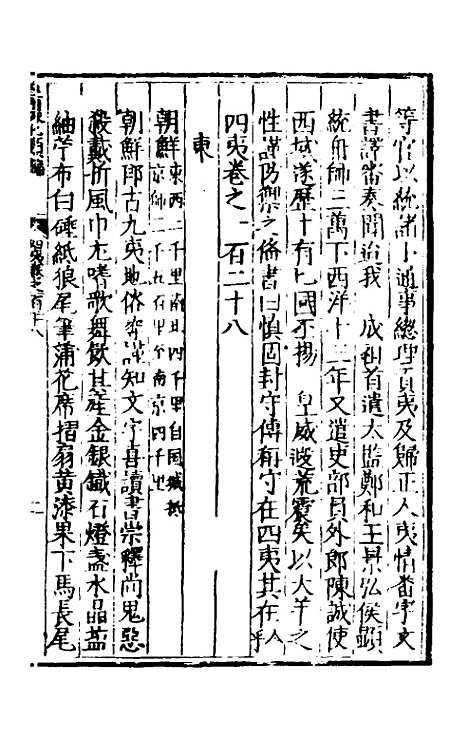 等官以統諸小通事總理貢夷及歸正人夷情番字文
書譯審奏聞洎我　成祖首遣太監鄭和王景弘侯顯
統舟師三萬下西洋十二年又遣吏部員外郎陳誠使
西域遂歷十有七國丕揚　皇威遐荒震矣以犬羊之
性謹防禦之脩書曰慎固封守傳有守在四夷其在人乎
四夷卷之一百二十八
東
朝鮮東西二千里南北四千里自國城抵
京師三千五百里至南京四千里
朝鮮即古九夷地俗柔謹知文字喜讀書崇釋尚鬼惡
殺戴折風巾尤嗜歌舞飲其產金銀鐵石燈盞水晶鹽
紬苧布白硾紙狼尾筆蒲花席摺扇黃漆果下馬長尾